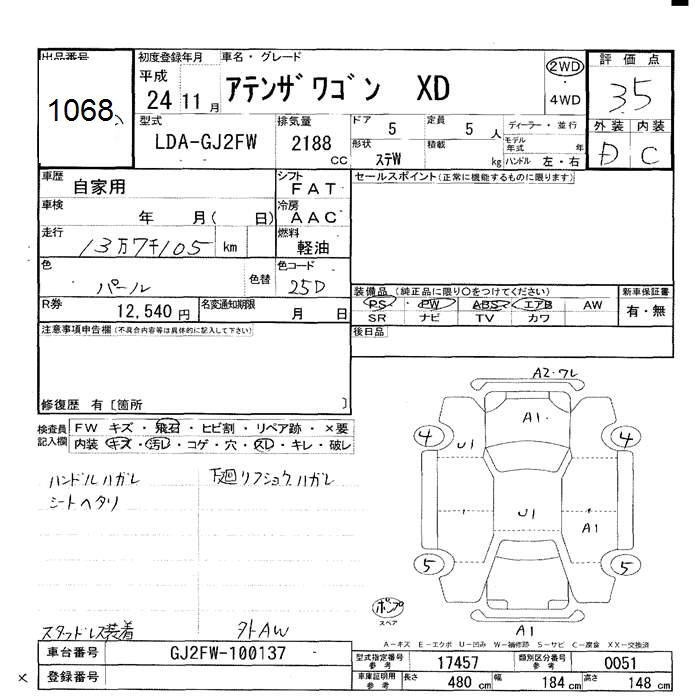 出品番号 初度登録年月 車名・グレード 評価点
1068 平成 24 11月 アテンザワゴン XD 2WD・4WD 35
型式 排気量 ドア 5 定員 5人 ディーラー・並行 外装 内装
LDA-GJ2FW 2188cc 形状 ステW 積載 kg モデル年式 年 ハンドル 左・右 D C
車歴 自家用 シフト FAT セールスポイント(正常に機能するものに限ります)
車検 年 月( 日) 冷房 AAC
走行 13万7千105 km 燃料 軽油
色 パール 色替 色コード 25D
装備品(純正品に限り○をつけてください) 新車保証書
PS・PW・ABS・エアB AW 有・無
SR ナビ TV カワ
R券 12,540円 名変通知期限 月 日
後日品
注意事項申告欄(不具合内容等は具体的に記入して下さい)
修復歴 有[箇所 ]
検査員記入欄 FW キズ・飛石・ヒビ割・リペア跡・×要
内装・キズ・汚レ・コゲ・穴・スレ・キレ・破レ
ハンドルハガレ 下廻リフショクハガレ
シートヘタリ
A2・ワレ
A1
4 U1 4
U1 A1
5 5
ポンプ
スペア
A1
スタッドレス装着 外AW
A-キズ E-エクボ U-凹み W-補修跡 S-サビ C-腐食 XX-交換済
車台番号 GJ2FW-100137 型式指定番号参考 17457 類別区分番号参考 0051
× 登録番号 車庫証明用参考 長さ 480cm 幅 184cm 高さ 148cm